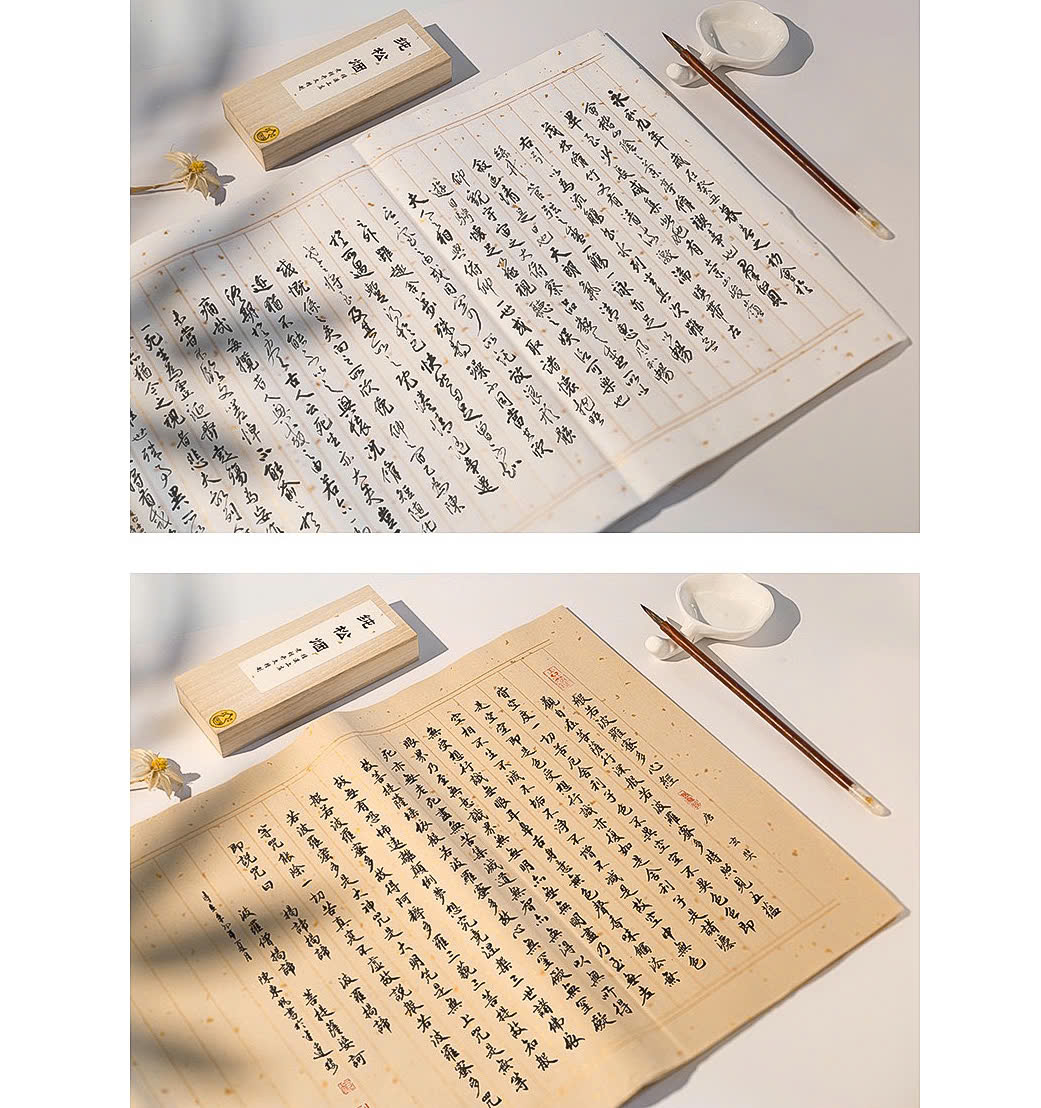 純松烟
永和九年歲在癸丑暮春之初會於
會稽山陰之蘭亭脩禊事也羣賢
畢至少長咸集此地有崇山峻領
茂林脩竹又有清流激湍暎帶左
右引以為流觴曲水列坐其次雖無
絲竹管弦之盛一觴一詠亦足以暢
敘幽情是日也天朗氣清惠風和暢
仰觀宇宙之大俯察品類之盛所以
遊目騁懷足以極視聽之娛信可樂也
夫人之相與俯仰一世或取諸懷抱悟
言一室之內或因寄所託放浪形骸
之外雖趣舍萬殊靜躁不同當其欣
於所遇暫得於己快然自足不知
老之將至及其所之既惓情隨事遷
感慨係之矣向之所欣俛仰之間已為陳
迹猶不能不以之興懷況脩短隨化
終期於盡古人云死生亦大矣豈
痛哉每攬昔人興感之由若合一
未嘗不臨文嗟悼不能喻之於
一死生為虛誕齊彭殤為妄作
猶今之視昔悲夫故列
世殊事異所
純松烟
般若波羅蜜多心經 唐 玄奘
觀自在菩薩行深般若波羅蜜多時照見五蘊
皆空度一切苦厄舍利子色不異空空不異色色即
是空空即是色受想行識亦復如是舍利子是諸法
空相不生不滅不垢不淨不增不減是故空中無色
無受想行識無眼耳鼻舌身意無色聲香味觸法無
眼界乃至無意識界無無明亦無無明盡乃至無老
死亦無老死盡無苦集滅道無智亦無得以無所得
故菩提薩埵依般若波羅蜜多故心無罣礙無罣礙
故無有恐怖遠離顛倒夢想究竟涅槃三世諸佛依
般若波羅蜜多故得阿耨多羅三藐三菩提故知般
若波羅蜜多是大神咒是大明咒是無上咒是無等
等咒能除一切苦真實不虛故說般若波羅蜜多咒
即說咒曰 揭諦揭諦 波羅揭諦
波羅僧揭諦 菩提薩婆訶